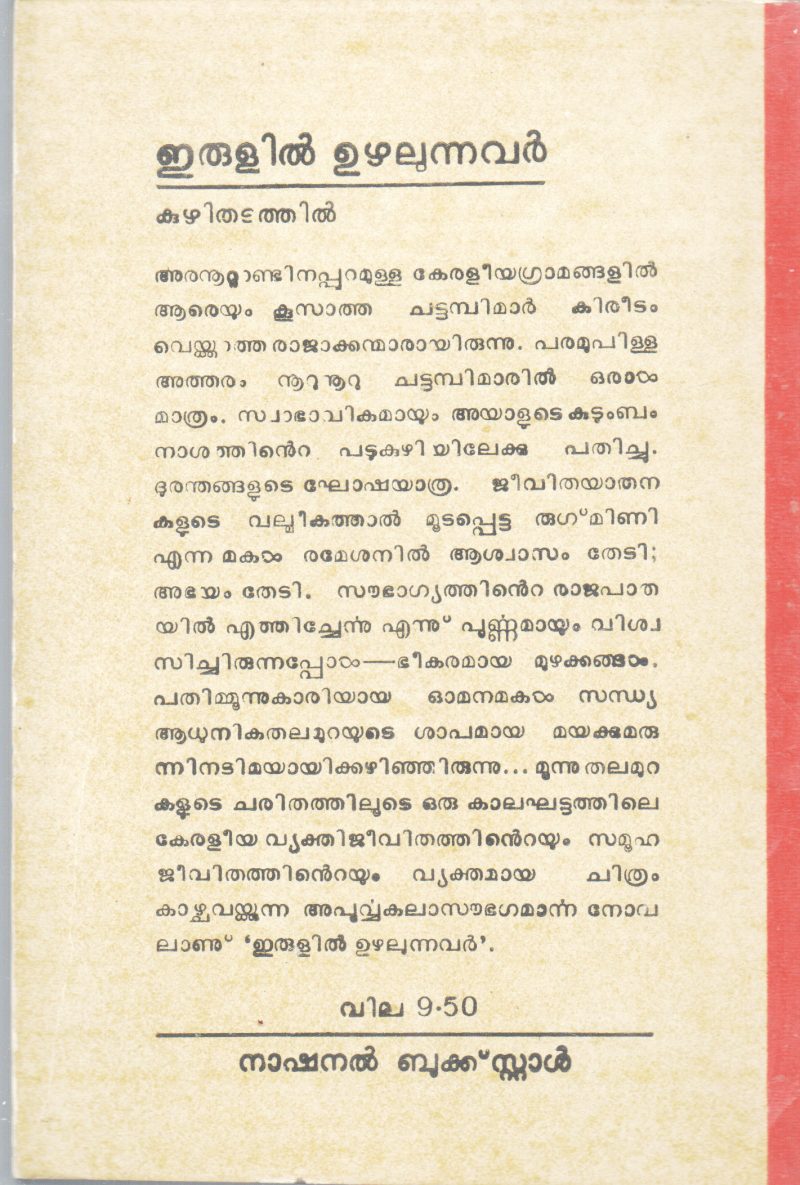 ഇരുളിൽ ഉഴലുന്നവർ
കുഴിതടത്തിൽ
അരനൂറ്റാണ്ടിനപ്പുറമുള്ള കേരളീയഗ്രാമങ്ങളിൽ
ആരെയും കൂസാത്ത ചട്ടമ്പിമാർ കിരീടം
വെയ്ക്കാത്ത രാജാക്കന്മാരായിരുന്നു. പരമുപിള്ള
അത്തരം നൂറുനൂറു ചട്ടമ്പിമാരിൽ ഒരാൾ
മാത്രം. സ്വാഭാവികമായും അയാളുടെ കുടുംബം
നാശത്തിൻെറ പടുകുഴിയിലേക്കു പതിച്ചു.
ദുരന്തങ്ങളുടെ ഘോഷയാത്ര. ജീവിതയാതന
കളുടെ വല്മീകത്താൽ മൂടപ്പെട്ട രുഗ്മിണി
എന്ന മകൾ രമേശനിൽ ആശ്വാസം തേടി;
അഭയം തേടി. സൗഭാഗ്യത്തിൻെറ രാജപാത
യിൽ എത്തിച്ചേർന്നു എന്നു് പൂർണ്ണമായും വിശ്വ
സിച്ചിരുന്നപ്പോൾ—ഭീകരമായ മുഴക്കങ്ങൾ.
പതിമ്മൂന്നുകാരിയായ ഓമനമകൾ സന്ധ്യ
ആധുനികതലമുറയുടെ ശാപമായ മയക്കുമരു
ന്നിനടിമയായിക്കഴിഞ്ഞിരുന്നു... മൂന്നു തലമുറ
കളുടെ ചരിതത്തിലൂടെ ഒരു കാലഘട്ടത്തിലെ
കേരളീയ വ്യക്തിജീവിതത്തിൻെറയും സമൂഹ
ജീവിതത്തിൻെറയും വ്യക്തമായ ചിത്രം
കാഴ്ചവയ്ക്കുന്ന അപൂർവ്വകലാസൗഭഗമാർന്ന നോവ
ലാണു് 'ഇരുളിൽ ഉഴലുന്നവർ'.
വില 9·50
നാഷനൽ ബുക്ക്സ്റ്റാൾ